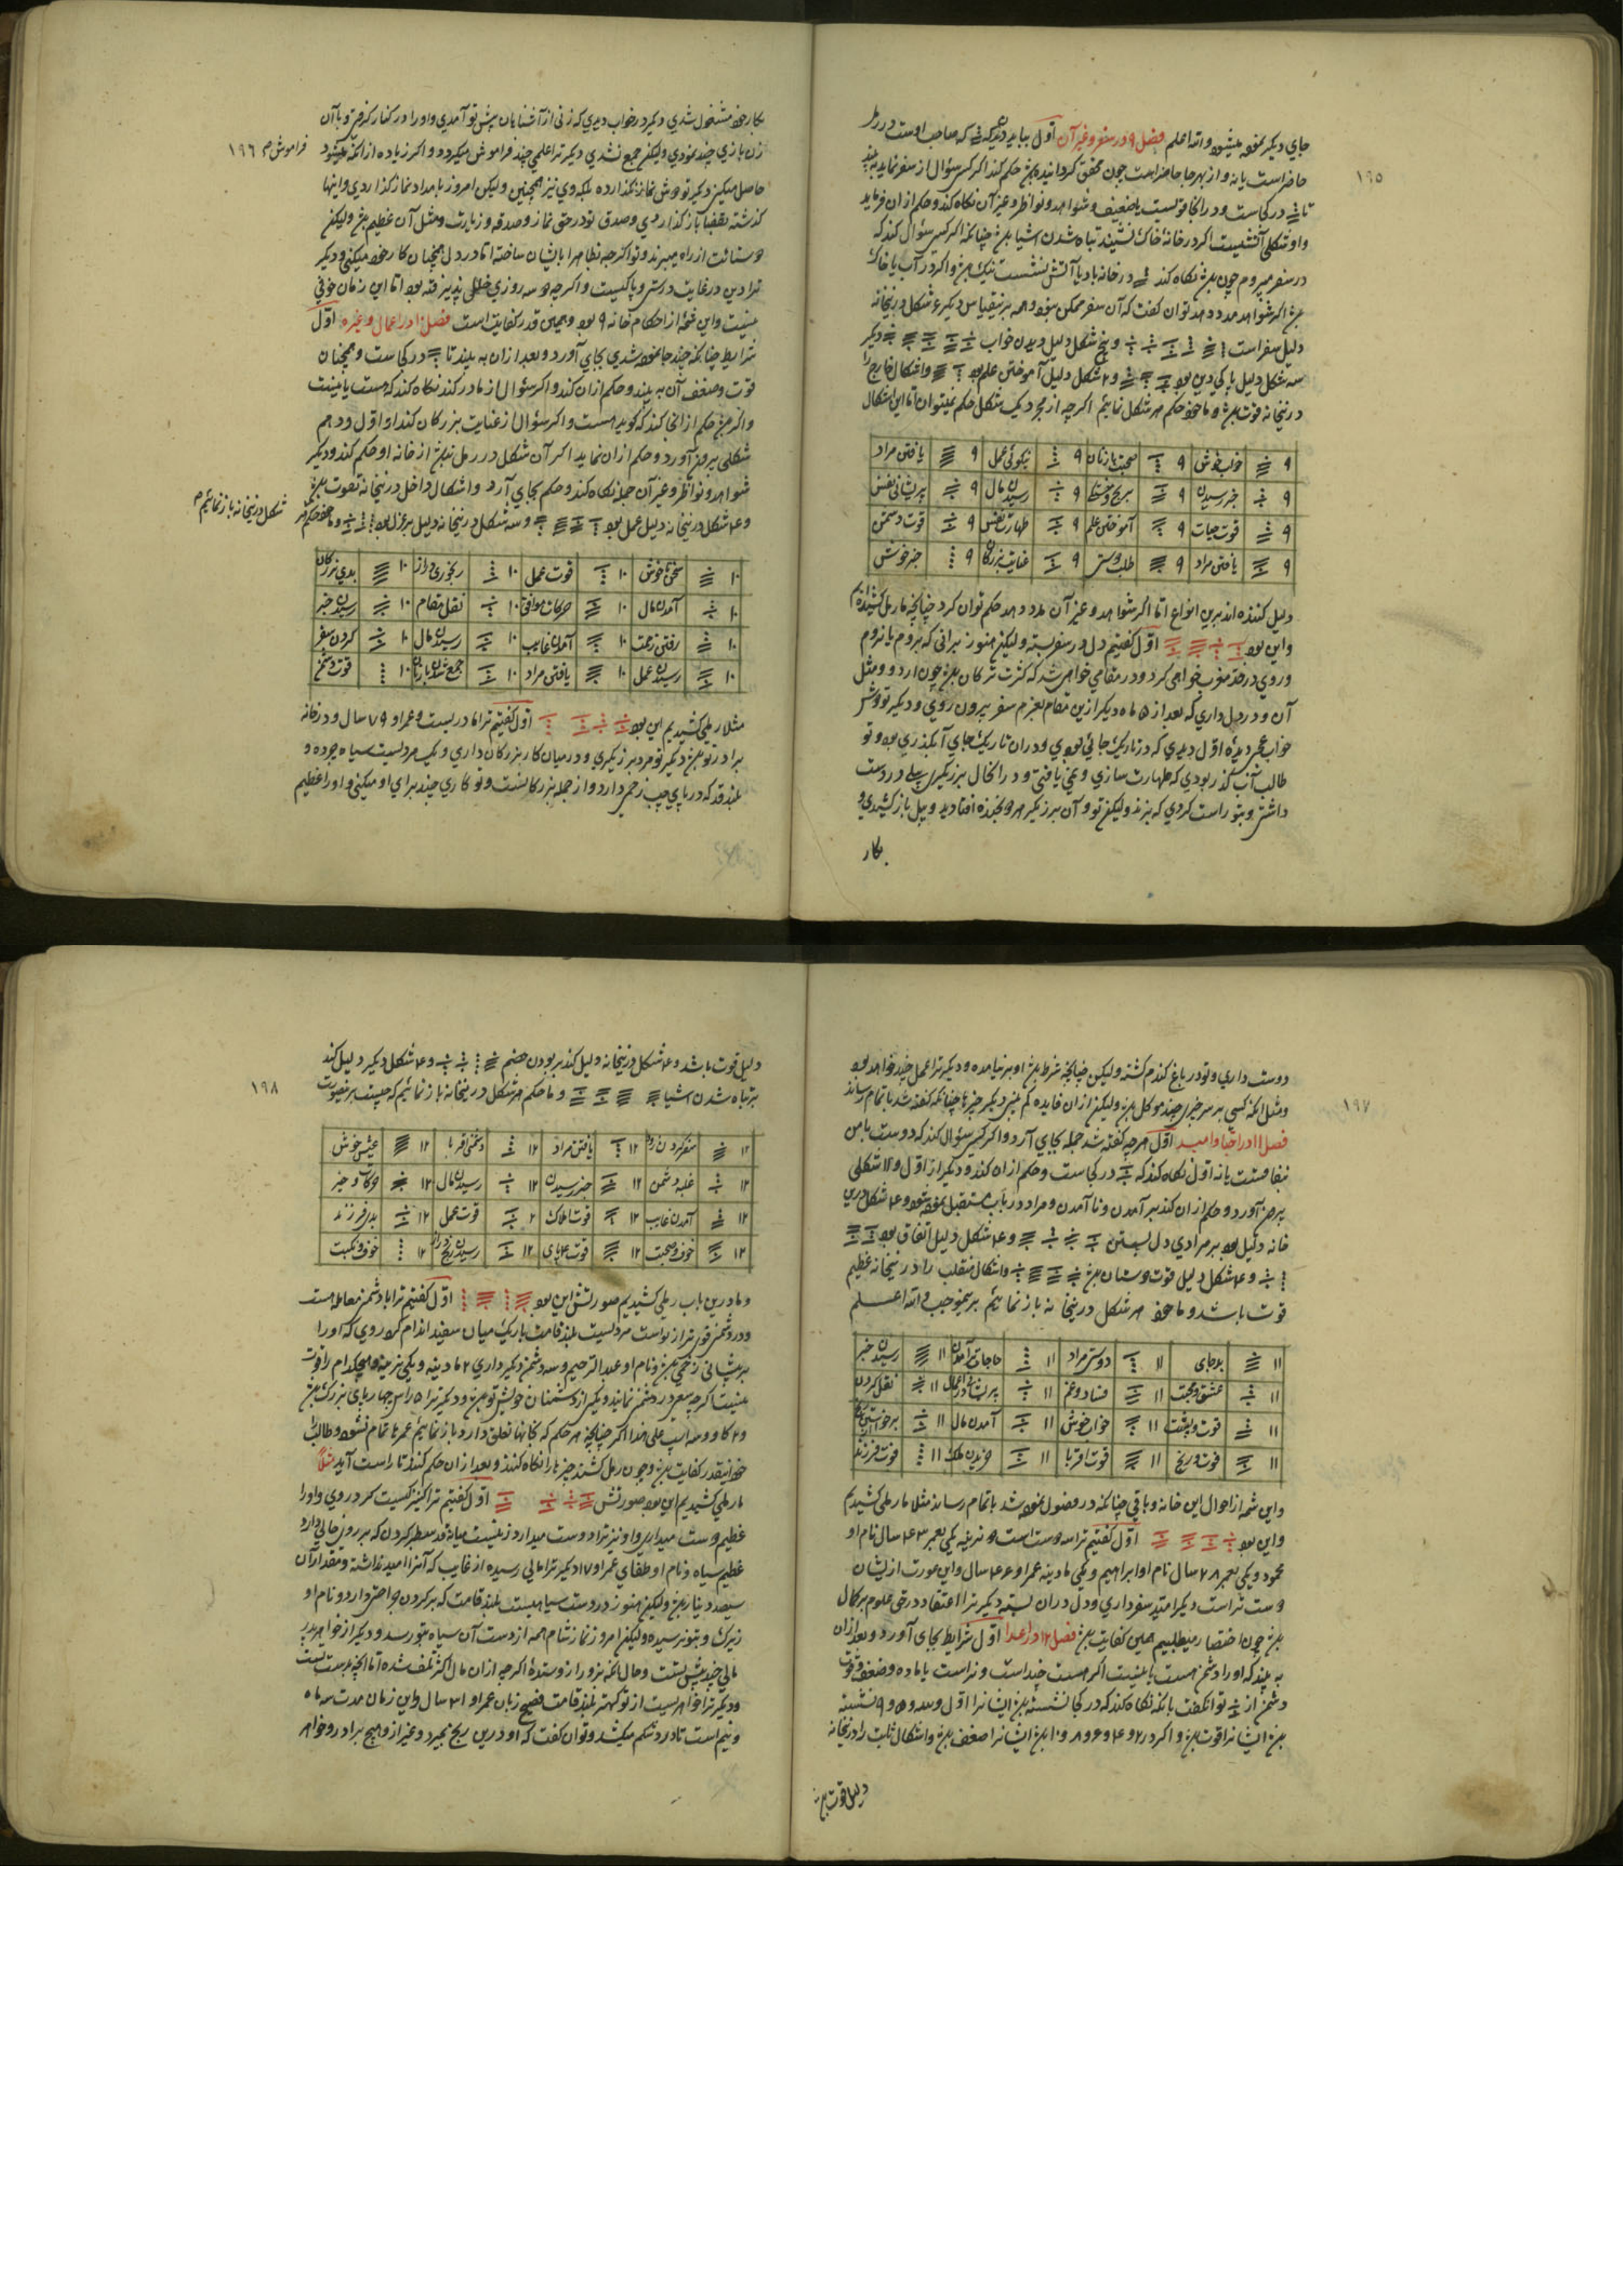 ١٩٥
جاي ديكر نموده ميشود والله اعلم فصل ٩ در سفر و غير آن اوّل ببايد ديد كه كه صاحب اوست در رمل
حاضر است يا نه و از بهر جا حاضر است چون محقق كردانيد حكم كند اكر كسي سؤال از سفر نمايد به بيند
تا در كجاست و در انجا قويست يا ضعيف و شواهد و نواظر و غير آن نكاه كند و حكم از ان فرمايد
و او شكلي آتشيست اكر در خانه خاك نشيند تباه شدن اشيا چنانكه اكر كسي سؤال كند كه
در سفر ميروم چون نكاه كند در خانه باد يا آتش نشست نيك و اكر در آب يا خاك
اكر شواهد مدد دهد توان كفت كه آن سفر ممكن بود و همه برينقياس ديكر ٤ شكل درينخانه
دليل سفر است و پنج شكل دليل ديدن خواب ديكر
سه شكل دليل پاكي دين بود و ٢ شكل دليل آموختن علم بود و اشكال خارج را
درينخانه قوت و ما خود حكم هر شكل نمائيم اكرچه از مجرد يك شكل حكم نميتوان اما اين اشكال
٩ خواب خوش ٩ صحبت با زنان ٩ نيكوئي عمل ٩ يافتن مراد
٩ خبر رسيدن ٩ ٩ رسيدن مال ٩ پريشاني نفس
٩ قوت حيات ٩ آموختن علم ٩ طهارت نفس ٩ قوت دشمن
٩ يافتن مراد ٩ طلب دوستي ٩ عنايت بزركان ٩ خبر خوش
دليل كننده اند برين انواع اما اكر شواهد و غير آن مدد دهد حكم توان كرد چنانچه ما رمل كشيديم
و اين بود اوّل كفتيم دل در سفر بسته وليكن هنوز برانی كه بروم يا نروم
و روي در مغرب خواهي كرد و در مقامي خواهي شد كه كثرت تركان چون اردو و مثل
آن و در دل داري كه بعد از ٥ ماه ديكر ازين مقام بعزم سفر بيرون روي و ديكر تو دوش
خواب عجب ديدۀ اوّل ديدي كه در تاريك جائي بودي و در ان تاريك جاي آبكذري بود و تو
طالب آب كذر بودي كه طهارت سازي و نمي يافتي و در انحال برزيكري بيلي در دست
داشتي و بتو راست كردي كه بزند وليكن تو و آن برزيكر هر دو بخنده افتاديد و بيل باز كشيدي و
بكار
١٩٦
بكار خود مشغول شدي ديكر در خواب ديدي كه زني از آشنايان پيش تو آمدي و او را در كنار كرفتي و با آن
زن بازي چند نمودي وليكن جمع نشدي ديكر ترا علمي چند فراموش ميكردد و اكر زياده از انكه ميشود
فراموش
حاصل ميكني ديكر تو دوش نماز نكذارده بلكه دي نيز همچنين وليكن امروز بامداد نماز كذاردي و اينها
كذشته بقضا باز كذاردي و صدق تو در حق نماز و صدقه و زيارت و مثل آن عظيم وليكن
دوستانت از راه ميبرند و تو اكرچه بظاهر با ايشان ساخته اما در دل همچنان كار خود ميكني و ديكر
ترا دين در غايت درستي و پاكيست و اكرچه دو سه روزي خللي پذيرفته بود اما اين زمان خوفي
نيست و اين شمه از احكام خانه ٩ بود و همين قدر كفايت است فصل ١٠ در اعمال و غيره اوّل
شرايط چنانكه چند جا نموده شدي بجاي آورد و بعد از ان به بيند تا در كجاست و همچنان
قوت و ضعف آن به بيند و حكم از ان كند و اكر سؤال از مادر كند نكاه كند كه هست يا نيست
و اكر حكم از انجا كند كه كويد هست و اكر سؤال از عنايت بزركان كند از اوّل و دهم
شكلي بيرون آورد و حكم از ان نمايد اكر آن شكل در رمل نباشد از خانه او حكم كند و ديكر
شواهد و نواظر و غير آن جمله نكاه كند و حكم بجاي آرد و اشكال داخل درينخانه بقوت باشد
و ٤ شكل درينخانه دليل عمل بود و سه شكل درينخانه دليل بر عزل بود و ما خود حكم هر
شكل درينخانه باز نمائيم
١٠ سخن ناخوش ١٠ قوت عمل ١٠ رنجوري دراز ١٠ بدي بزركان
١٠ آمدن مال ١٠ حركات موافق ١٠ نقل مقام ١٠ رسيدن خبر
١٠ رفتن زحمت ١٠ آمدن غايب ١٠ رسيدن مال ١٠ كردن سفر
١٠ رسيدن عمل ١٠ يافتن مراد ١٠ جمع شدن با ياران ١٠ قوت دشمن
مثلا رملي كشيديم اين بود اوّل كفتيم ترا مادريست و عمر او ٧٩ سال و در خانه
برادر تو ديكر تو مرد برزيكري و در ميان كار بزركان داري و يك مرديست سياه چرده و
بلند قد كه در پاي چپ زخمي دارد و از جمله بزركانست و تو كاري چند براي او ميكني و او را عظيم
١٩٧
دوست داري و تو در باغ كندم كشته وليكن چنانچه شرط او بر نيامده و ديكر ترا عملي چند خواهد بود
و مثل انكه كسي بر سر خيري چند موكل وليكن از ان فايده كم بيني ديكر خبرها چنانكه كفته شد باتمام رساند
فصل ١١ در احبا و اميد اوّل هرچه كفته شد جمله بجاي آرد و اكر كسي سؤال كند كه دوست با من
بنفاقست يا نه اوّل نكاه كند كه در كجاست و حكم از ان كند و ديكر از اوّل و ١١ شكلي
بيرون آورد و حكم از ان كند بر آمدن و نا آمدن و مراد در باب مستقبل نموده شود و ٤ شكل درين
خانه دليل بود بر مرادي دل بستن و ٤ شكل دليل اتفاق بود
و ٤ شكل دليل قوت دوستان و اشكال منقلب را درينخانه عظيم
قوت باشد و ما خود هر شكل درينخانه باز نمائيم برينموجب والله اعلم
١١ بدحالي ١١ دوستي مراد ١١ حاجات آمدن ١١ رسيدن خبر
١١ عشق و محبت ١١ فساد و غم ١١ ١١ نقل كردن
١١ ١١ خواب خوش ١١ آمدن مال ١١
١١ قوت و رنج ١١ قوت اقربا ١١ خريدن ملك ١١ قوت فرزند
و اين شمه از احوال اين خانه و باقي چنانكه در فصول نموده شد باتمام رساند مثلا ما رملي كشيديم
و اين بود اوّل كفتيم ترا سه دوست است دو نرينه يكي بعمر ٤٣ سال نام او
محمود و يكي بعمر ٢٨ سال نام او ابراهيم و يكي مادينه عمر او ٤٤ سال و اين عورت از ايشان
دوست تر است ديكر اميد سفر داري و دل در ان بسته ديكر ترا اعتقاد در حق علوم بر كمال
چون اختصار ميطلبيم همين كفايت فصل ١٢ در اعدا اوّل شرايط بجاي آورد و بعد از ان
به بيند كه او را دشمن هست يا نيست اكر هست چند است و نر است يا ماده و ضعف و قوت
دشمن از توان كفت بانكه نكاه كند كه در كجا نشسته ايشانرا اوّل و سه و ٥ و ٩ نشسته
ايشانرا قوت و اكر در ٢ و ٤ و ٦ و ٨ و ١٠ ايشانرا ضعف و اشكال ثابت را درينخانه
دليل قوت
١٩٨
دليل قوت باشد و ٤ شكل درينخانه دليل كند بر بودن خصم و ٤ شكل ديكر دليل كند
بر تباه شدن اشيا و ما حكم هر شكل درينخانه باز نمائيم كه چيست برينصورت
١٢ سفر كردن زود ١٢ يافتن مراد ١٢ دشمني اقربا ١٢ عيش خوش
١٢ غلبه دشمن ١٢ خبر رسيدن ١٢ رسيدن مال ١٢ حركات و خير
١٢ آمدن غايب ١٢ قوت املاك ٢ قوت عمل ١٢ بدي فرزند
١٢ خوف و صحبت ١٢ ١٢ ١٢ خوف و نكبت
و ما درين باب رملي كشيديم صورتش اين بود اوّل كفتيم ترا با دشمن معامله است
و در دشمني قوي تر از تواست مرديست بلند قامت باريك ميان سفيد اندام كرد روي كه او را
بر پيشاني زخمي و نام او عبد الرحيم و سه دشمن ديكر داري ٢ مادينه و يكي نرينه و هيچكدام را قوت
نيست اكرچه سعي در دشمني نمايند و يكي از دشمنان خويش تو و ديكر ترا ٥ راس چهارپاي بزرك
و ٢ كاو و سه اسپ علي هذا اكر چنانچه هر حكم كه بخانها تعلق دارد باز نمائيم عمرها تمام نشود و طالب را
خود اينقدر كفايت و چون رمل كشند چيزها را نكاه كنند و بعد از ان حكم كنند تا راست آيد مثلاً
ما رملي كشيديم اين بود صورتش اوّل كفتيم ترا كنيزكيست كرد روي و او را
عظيم دوست ميداري و او نيز ترا دوست ميدارد زنيست ميانه قد سطبر كردن كه بر روي خالي دارد
عظيم سياه و نام او طغاي عمر او ١٧ ديكر ترا مالي رسيده از غايب كه آنرا اميد نداشته و مقدار آن
سيصد دينار وليكن هنوز در دست سياهيست بلند قامت كه بر كردن جراحتي دارد و نام او
زيرك و بتو نرسيده وليكن امروز نماز شام همه از دست آن سياه بتو رسد و ديكر از خواهر پدر
مالي چند پيش تست و حال انكه نزد او را نفرستادۀ اكرچه از ان مال اكثر تلف شده اما انچه بدست تست
و ديكر ترا خواهريست از تو كهتر بلند قامت فصيح زبان عمر او ٣١ سال و اين زمان مدت سه ماه
و نيم است تا درد شكم ميكشد و توان كفت كه او درين رنج بميرد و غير از و هيچ برادر و خواهر